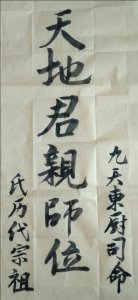 九天東厨司命
天地君親師位
氏历代宗祖